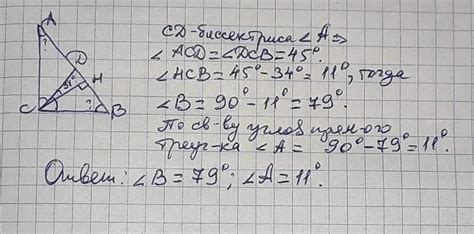 A
?
D
34°
H
C
?
B
CD-биссектриса ∠A ⇒
∠ACD=∠DCB=45°.
∠HCB=45°-34°=11°, тогда
∠B=90°-11°=79°.
По св-ву углов прям-ого
треуг-ка ∠A= 90°-79°=11°.
Ответ: ∠B=79°; ∠A=11°.